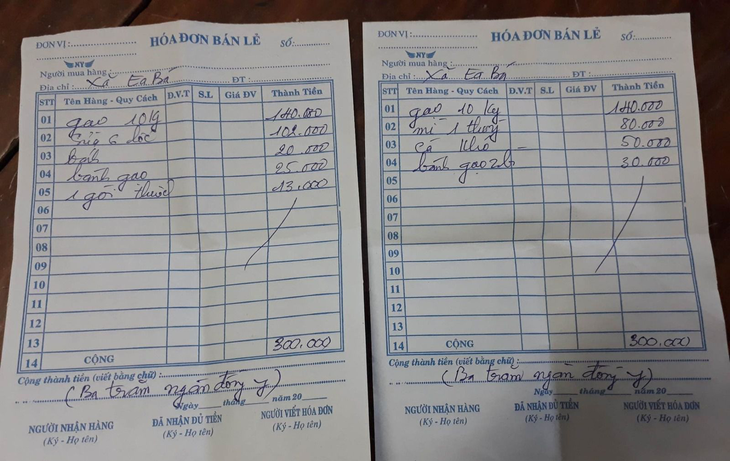 ĐƠN VỊ :
HÓA ĐƠN BÁN LẺ
SỐ:
XY
Người mua hàng
Địa chỉ : Xã Ea Bá ĐT :
STT Tên Hàng - Quy Cách Đ.V.T S.L Giá ĐV Thành Tiền
01 gạo 10kg 140.000
02 6 lốc 102.000
03 bánh 20.000
04 bánh gạo 25.000
05 1 gói thuốc 13.000
06
07
08
09
10
11
12
13
14 CỘNG 300.000
Cộng thành tiền (viết bằng chữ) :
(Ba trăm ngàn đồng y)
Ngày tháng năm 20
NGƯỜI NHẬN HÀNG ĐÃ NHẬN ĐỦ TIỀN NGƯỜI VIẾT HÓA ĐƠN
(Ký - Họ tên) (Ký - Họ tên)
ĐƠN VỊ :
HÓA ĐƠN BÁN LẺ
SỐ:
XY
Người mua hàng
Địa chỉ : Xã Ea Bá ĐT :
STT Tên Hàng - Quy Cách Đ.V.T S.L Giá ĐV Thành Tiền
01 gạo 10 kg 140.000
02 mì 1 thùng 80.000
03 cá khô 50.000
04 bánh gạo 2 lô 30.000
05
06
07
08
09
10
11
12
13
14 CỘNG 300.000
Cộng thành tiền (viết bằng chữ) :
(Ba trăm ngàn đồng y)
Ngày tháng năm 20
NGƯỜI NHẬN HÀNG ĐÃ NHẬN ĐỦ TIỀN NGƯỜI VIẾT HÓA ĐƠN
(Ký - Họ tên) (Ký - Họ tên)